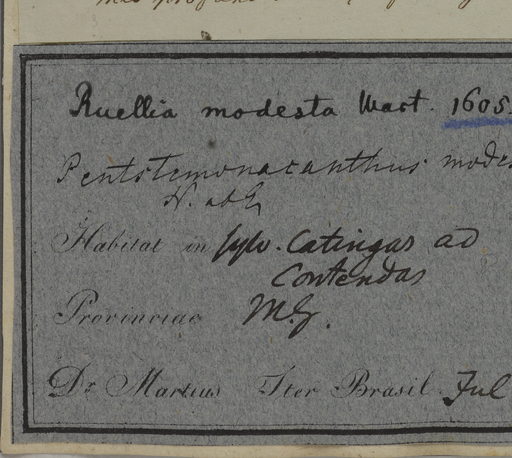 Ruellia modesta Mart. 1605.
Pentstemonacanthus modes
N. ab E.
Habitat in sylv. Catingas ad
Contendas
Provinciae M.G.
Dr Martius Iter Brasil. Jul